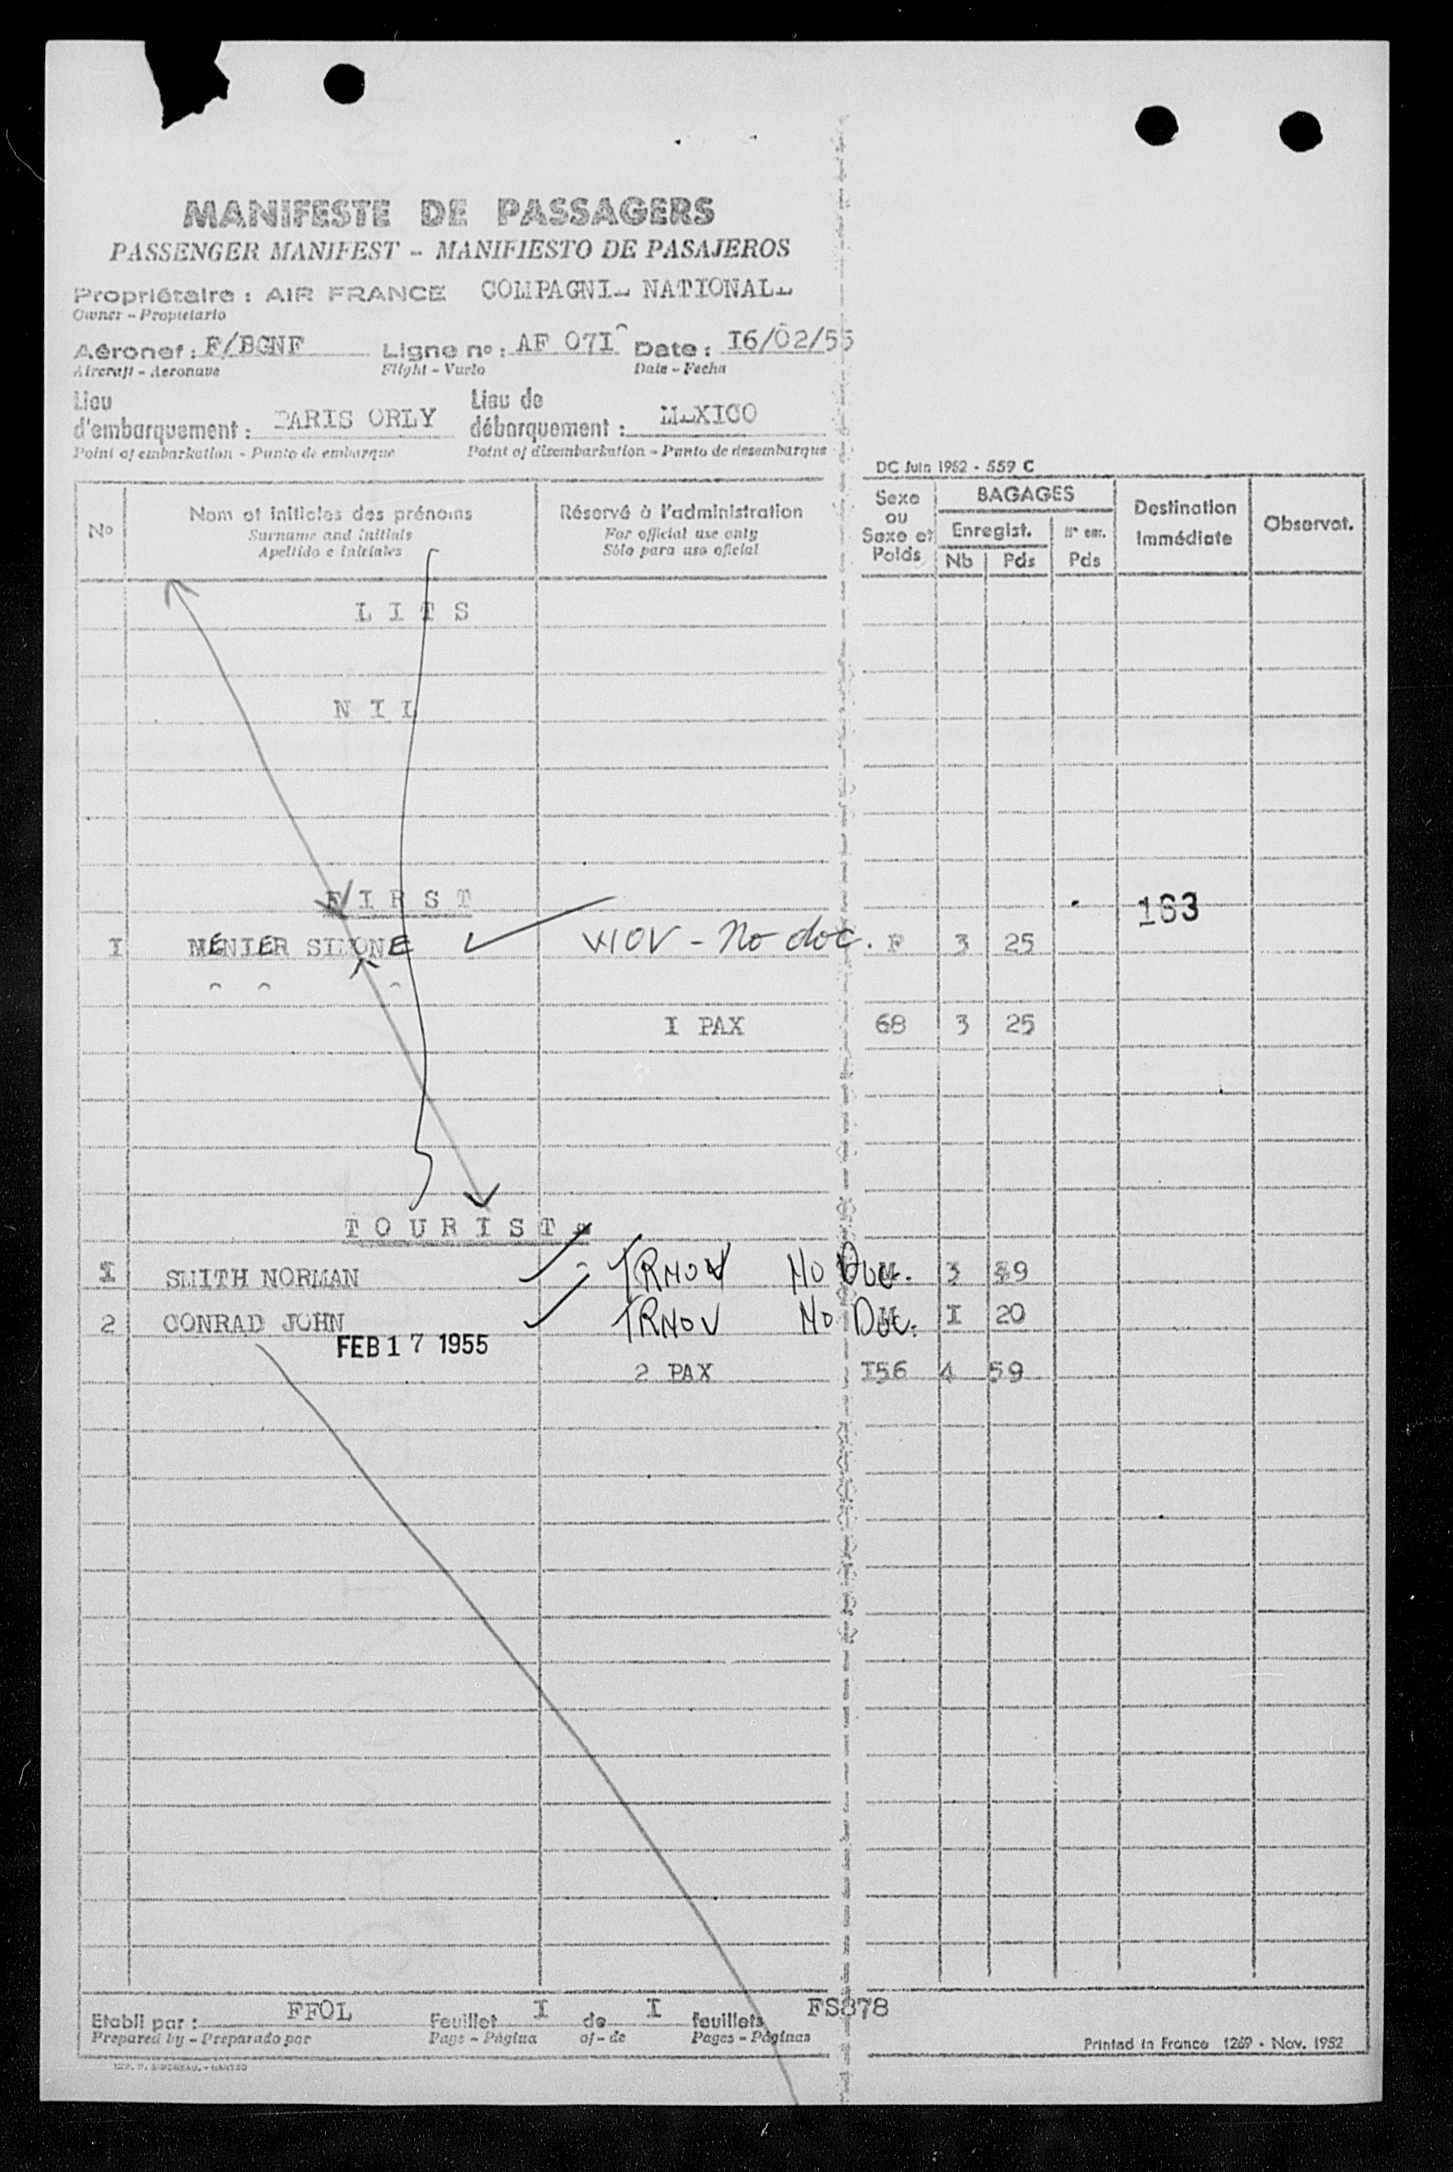 MANIFESTE DE PASSAGERS
PASSENGER MANIFEST - MANIFIESTO DE PASAJEROS
Propriétaire : AIR FRANCE COMPAGNIE NATIONALE
Owner - Propietario
Aéronef : F/BGNF Ligne nº : AF 071 Date : I6/02/55
Aircraft - Aeronave Flight - Vuelo Date - Fecha
Lieu d'embarquement : PARIS ORLY Lieu de débarquement : MEXICO
Point of embarkation - Punto de embarque Point of disembarkation - Punto de desembarque
DC Juin 1952 - 559 C
Nº Nom et initiales des prénoms Réservé à l'administration Sexe ou Sexe et Poids BAGAGES Destination Immédiate Observat.
Surname and initials For official use only Enregist. Nº enr.
Apellido e iniciales Sólo para uso oficial Nb Pds Pds
L I T S
N I L
F I R S T
163
I MÉNIER SIMONE - No doc. F 3 25
I PAX 68 3 25
T O U R I S T E
I SMITH NORMAN TRMOV NO DOC. 3 39
2 CONRAD JOHN TRMOV NO DOC. I 20
FEB 17 1955
2 PAX I56 4 59
Etabli par : FFOL Feuillet I de I feuillets FS878
Prepared by - Preparado por Page - Página of - de Pages - Páginas
Printed in France 1269 - Nov. 1952